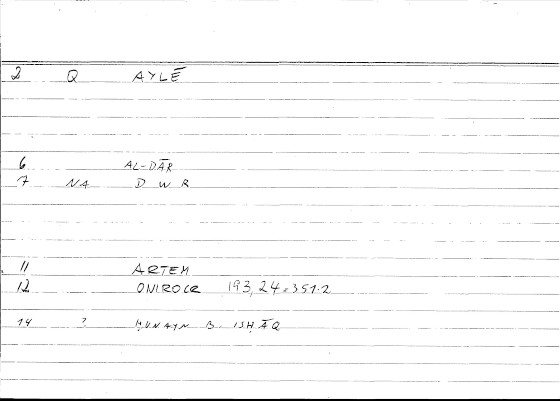 2 Q AYLĒ
6 AL-DĀR
7 NA D W R
11 ARTEM
12 ONIROCR 193,24=351.2
14 ? ḤUNAYN B. ISḤĀQ